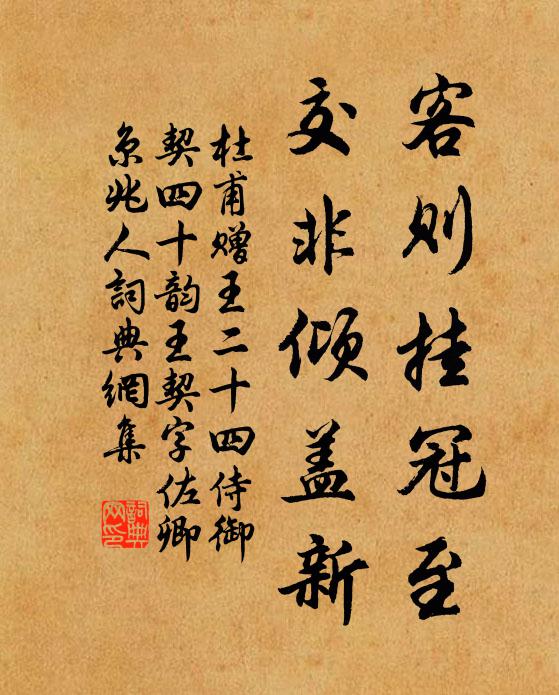 客则挂冠至
交非倾盖新
杜甫赠王二十四侍御
契四十韵王契字佐卿
京兆人詞典網集
詞典网印